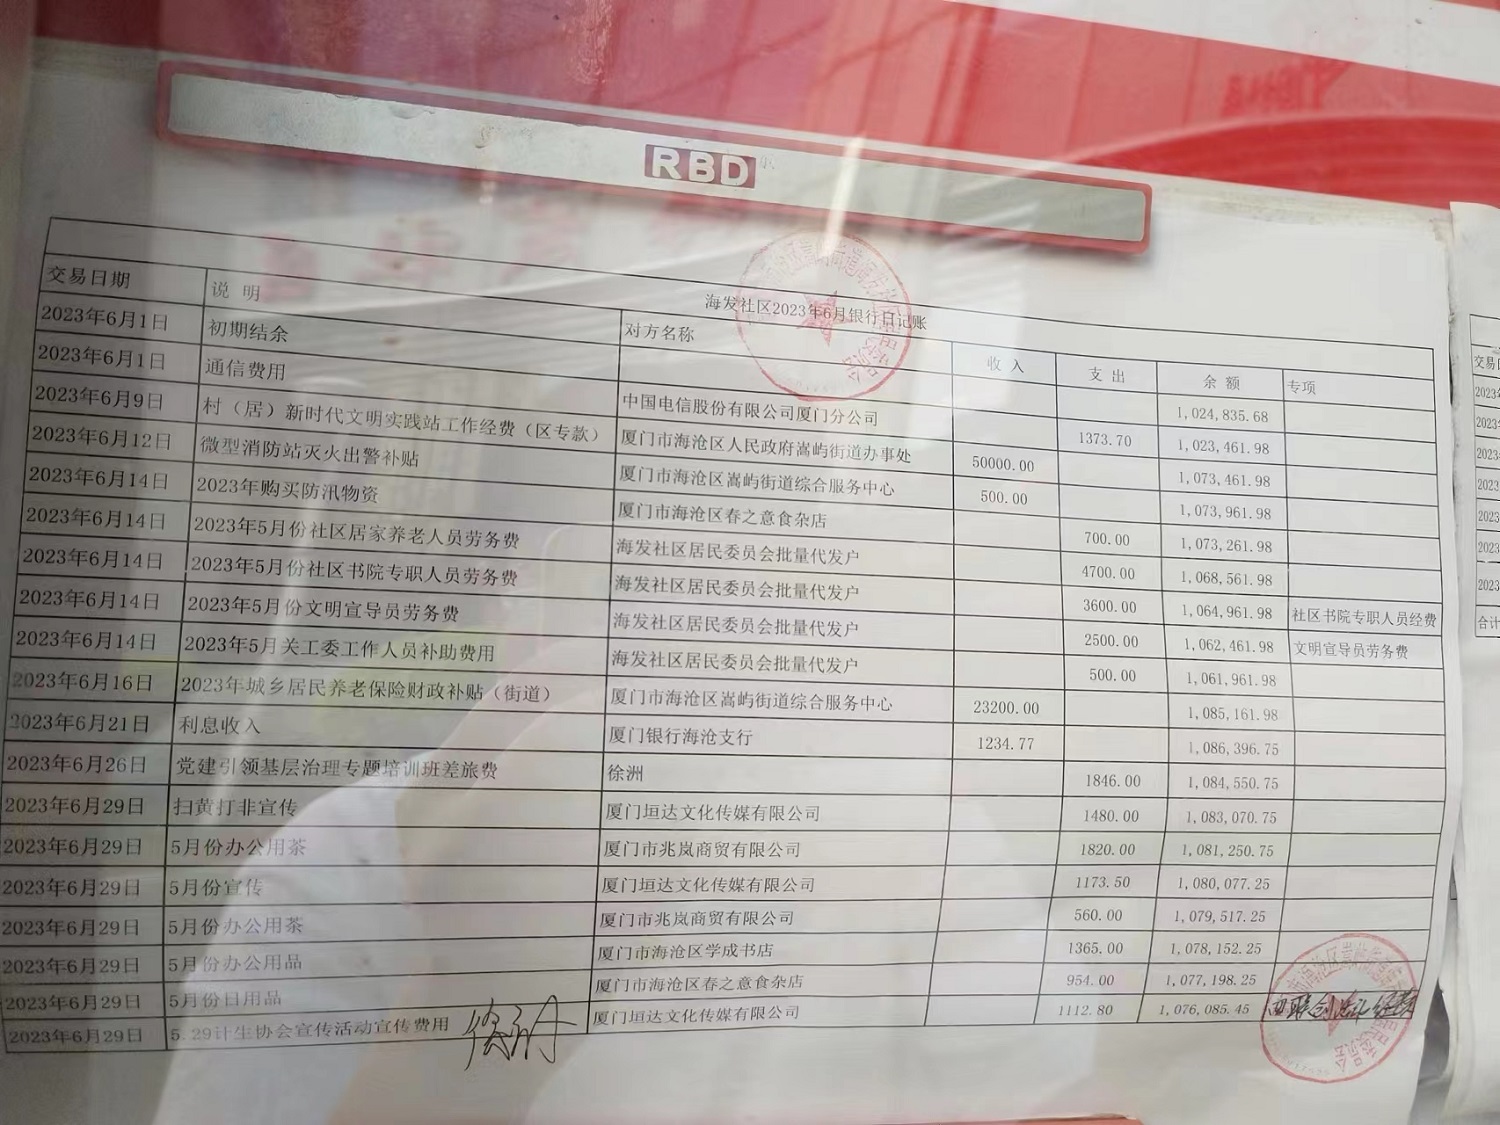 RBD
海发社区2023年6月银行日记账
交易日期 说 明 对方名称 收 入 支 出 余 额 专项
2023年6月1日 初期结余 1,024,835.68
2023年6月1日 通信费用 中国电信股份有限公司厦门分公司 1373.70 1,023,461.98
2023年6月9日 村（居）新时代文明实践站工作经费（区专款） 厦门市海沧区人民政府嵩屿街道办事处 50000.00 1,073,461.98
2023年6月12日 微型消防站灭火出警补贴 厦门市海沧区嵩屿街道综合服务中心 500.00 1,073,961.98
2023年6月14日 2023年购买防汛物资 厦门市海沧区春之意食杂店 700.00 1,073,261.98
2023年6月14日 2023年5月份社区居家养老人员劳务费 海发社区居民委员会批量代发户 4700.00 1,068,561.98
2023年6月14日 2023年5月份社区书院专职人员劳务费 海发社区居民委员会批量代发户 3600.00 1,064,961.98 社区书院专职人员经费
2023年6月14日 2023年5月份文明宣导员劳务费 海发社区居民委员会批量代发户 2500.00 1,062,461.98 文明宣导员劳务费
2023年6月14日 2023年5月关工委工作人员补助费用 海发社区居民委员会批量代发户 500.00 1,061,961.98
2023年6月16日 2023年城乡居民养老保险财政补贴（街道） 厦门市海沧区嵩屿街道综合服务中心 23200.00 1,085,161.98
2023年6月21日 利息收入 厦门银行海沧支行 1234.77 1,086,396.75
2023年6月26日 党建引领基层治理专题培训班差旅费 徐洲 1846.00 1,084,550.75
2023年6月29日 扫黄打非宣传 厦门垣达文化传媒有限公司 1480.00 1,083,070.75
2023年6月29日 5月份办公用茶 厦门市兆岚商贸有限公司 1820.00 1,081,250.75
2023年6月29日 5月份宣传 厦门垣达文化传媒有限公司 1173.50 1,080,077.25
2023年6月29日 5月份办公用茶 厦门市兆岚商贸有限公司 560.00 1,079,517.25
2023年6月29日 5月份办公用品 厦门市海沧区学成书店 1365.00 1,078,152.25
2023年6月29日 5月份日用品 厦门市海沧区春之意食杂店 954.00 1,077,198.25
2023年6月29日 5.29计生协会宣传活动宣传费用 厦门垣达文化传媒有限公司 1112.80 1,076,085.45
交易日
2023
2023
2023
2023
2023
2023
2023
合计